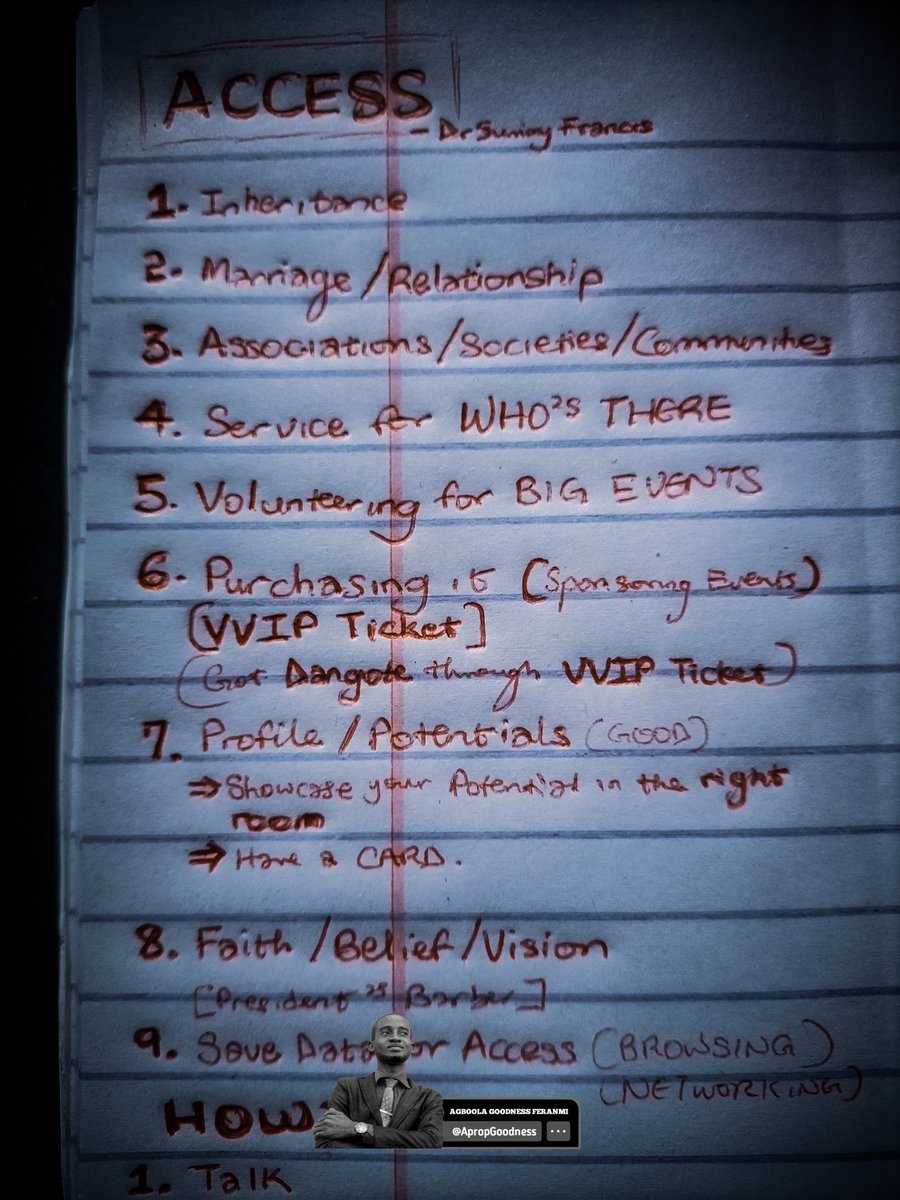 ACCESS
- Dr Sunny Francis
1. Inheritance
2. Marriage/Relationship
3. Associations/Societies/Communities
4. Service for WHO's THERE
5. Volunteering for BIG EVENTS
6. Purchasing it (Sponsoring Events)
[VVIP Ticket]
(Got Dangote through VVIP Ticket)
7. Profile/Potentials (GOOD)
⇒ Showcase your Potential in the right
room
⇒ Have a CARD.
8. Faith/Belief/Vision
[President's Barber]
9. Save Data or Access (BROWSING)
(NETWORKING)
HOW
AGBOOLA GOODNESS FERANMI
@ApropGoodness
1. Talk